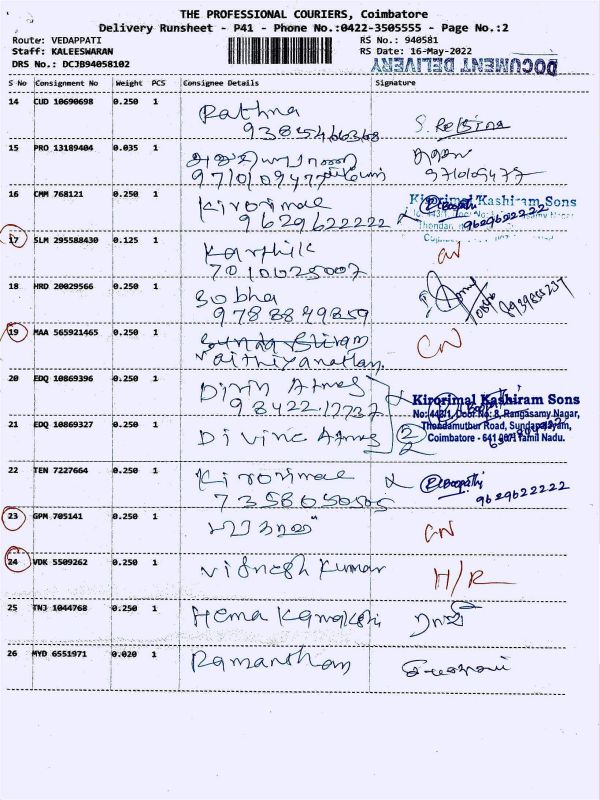 THE PROFESSIONAL COURIERS, Coimbatore
Delivery Runsheet - P41 - Phone No.:0422-3505555 - Page No.:2
Route: VEDAPPATI RS No.: 940581
Staff: KALEESWARAN RS Date: 16-May-2022
DRS No.: DCJB94058102 DOCUMENT DELIVERY
S No Consignment No Weight PCS Consignee Details Signature
14 CUD 10690698 0.250 1 Rathna
15 PRO 13189404 0.035 1
9710109477 9710109477
16 CMM 768121 0.250 1 Kirorimal Kirorimal Kashiram Sons
9629622222 9629622222
17 SLM 295588430 0.125 1 Karthik
7010025007
18 HRD 20029566 0.250 1 Sobha
9788849859
19 MAA 565921465 0.250 1 CN
Vaithiyanathan
20 EDQ 10869396 0.250 1 Divin Atmas
98422 12737 Kirorimal Kashiram Sons
No: 443/1, Door No: 8, Rangasamy Nagar,
21 EDQ 10869327 0.250 1 Divine Atmas 2/2 Thondamuthur Road, Sundapalayam,
Coimbatore - 641 007. Tamil Nadu.
22 TEN 7227664 0.250 1 Kirorimal Boopathi
7358050505 9629622222
23 GPM 705141 0.250 1 CN
24 VDK 5509262 0.250 1 Vignesh Kumar H/R
25 TNJ 1044768 0.250 1 Hema Kamakshi
26 MYD 6551971 0.020 1 Ramanathan